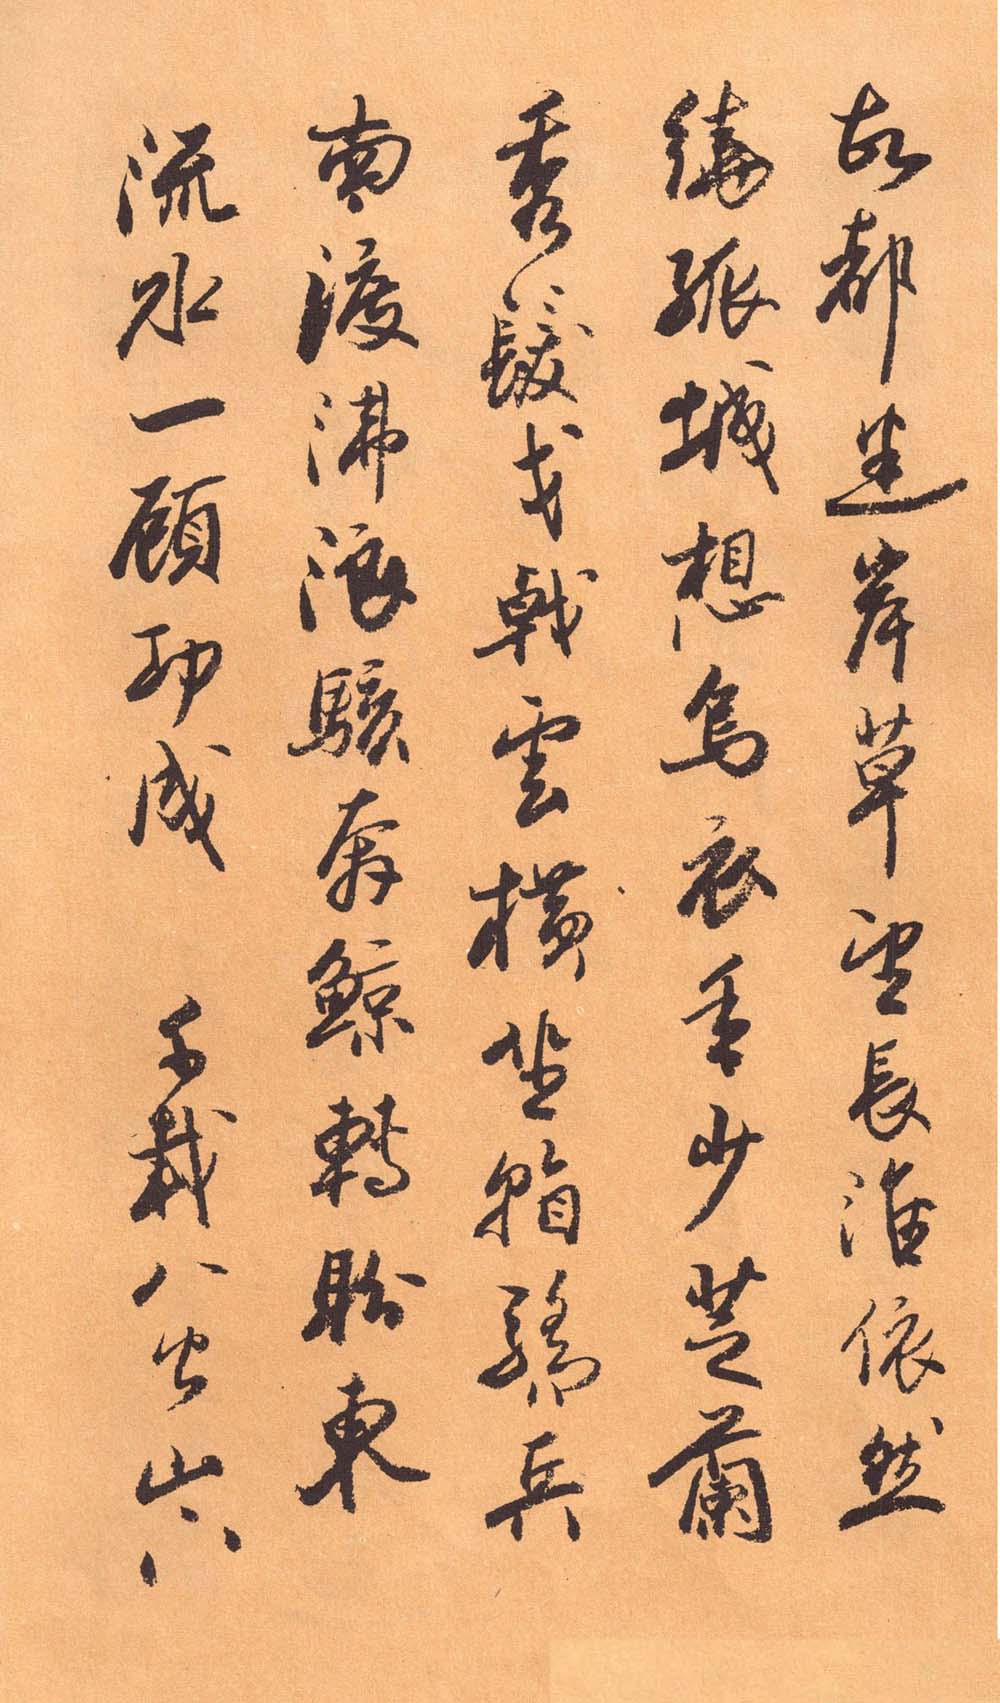 故都迷岸草望長淮依然
繞孤城想烏衣年少芝蘭
秀髮戈戟雲橫坐看驕兵
南渡沸浪駭奔鯨轉盼東
流水一顧功成 千載八公山下